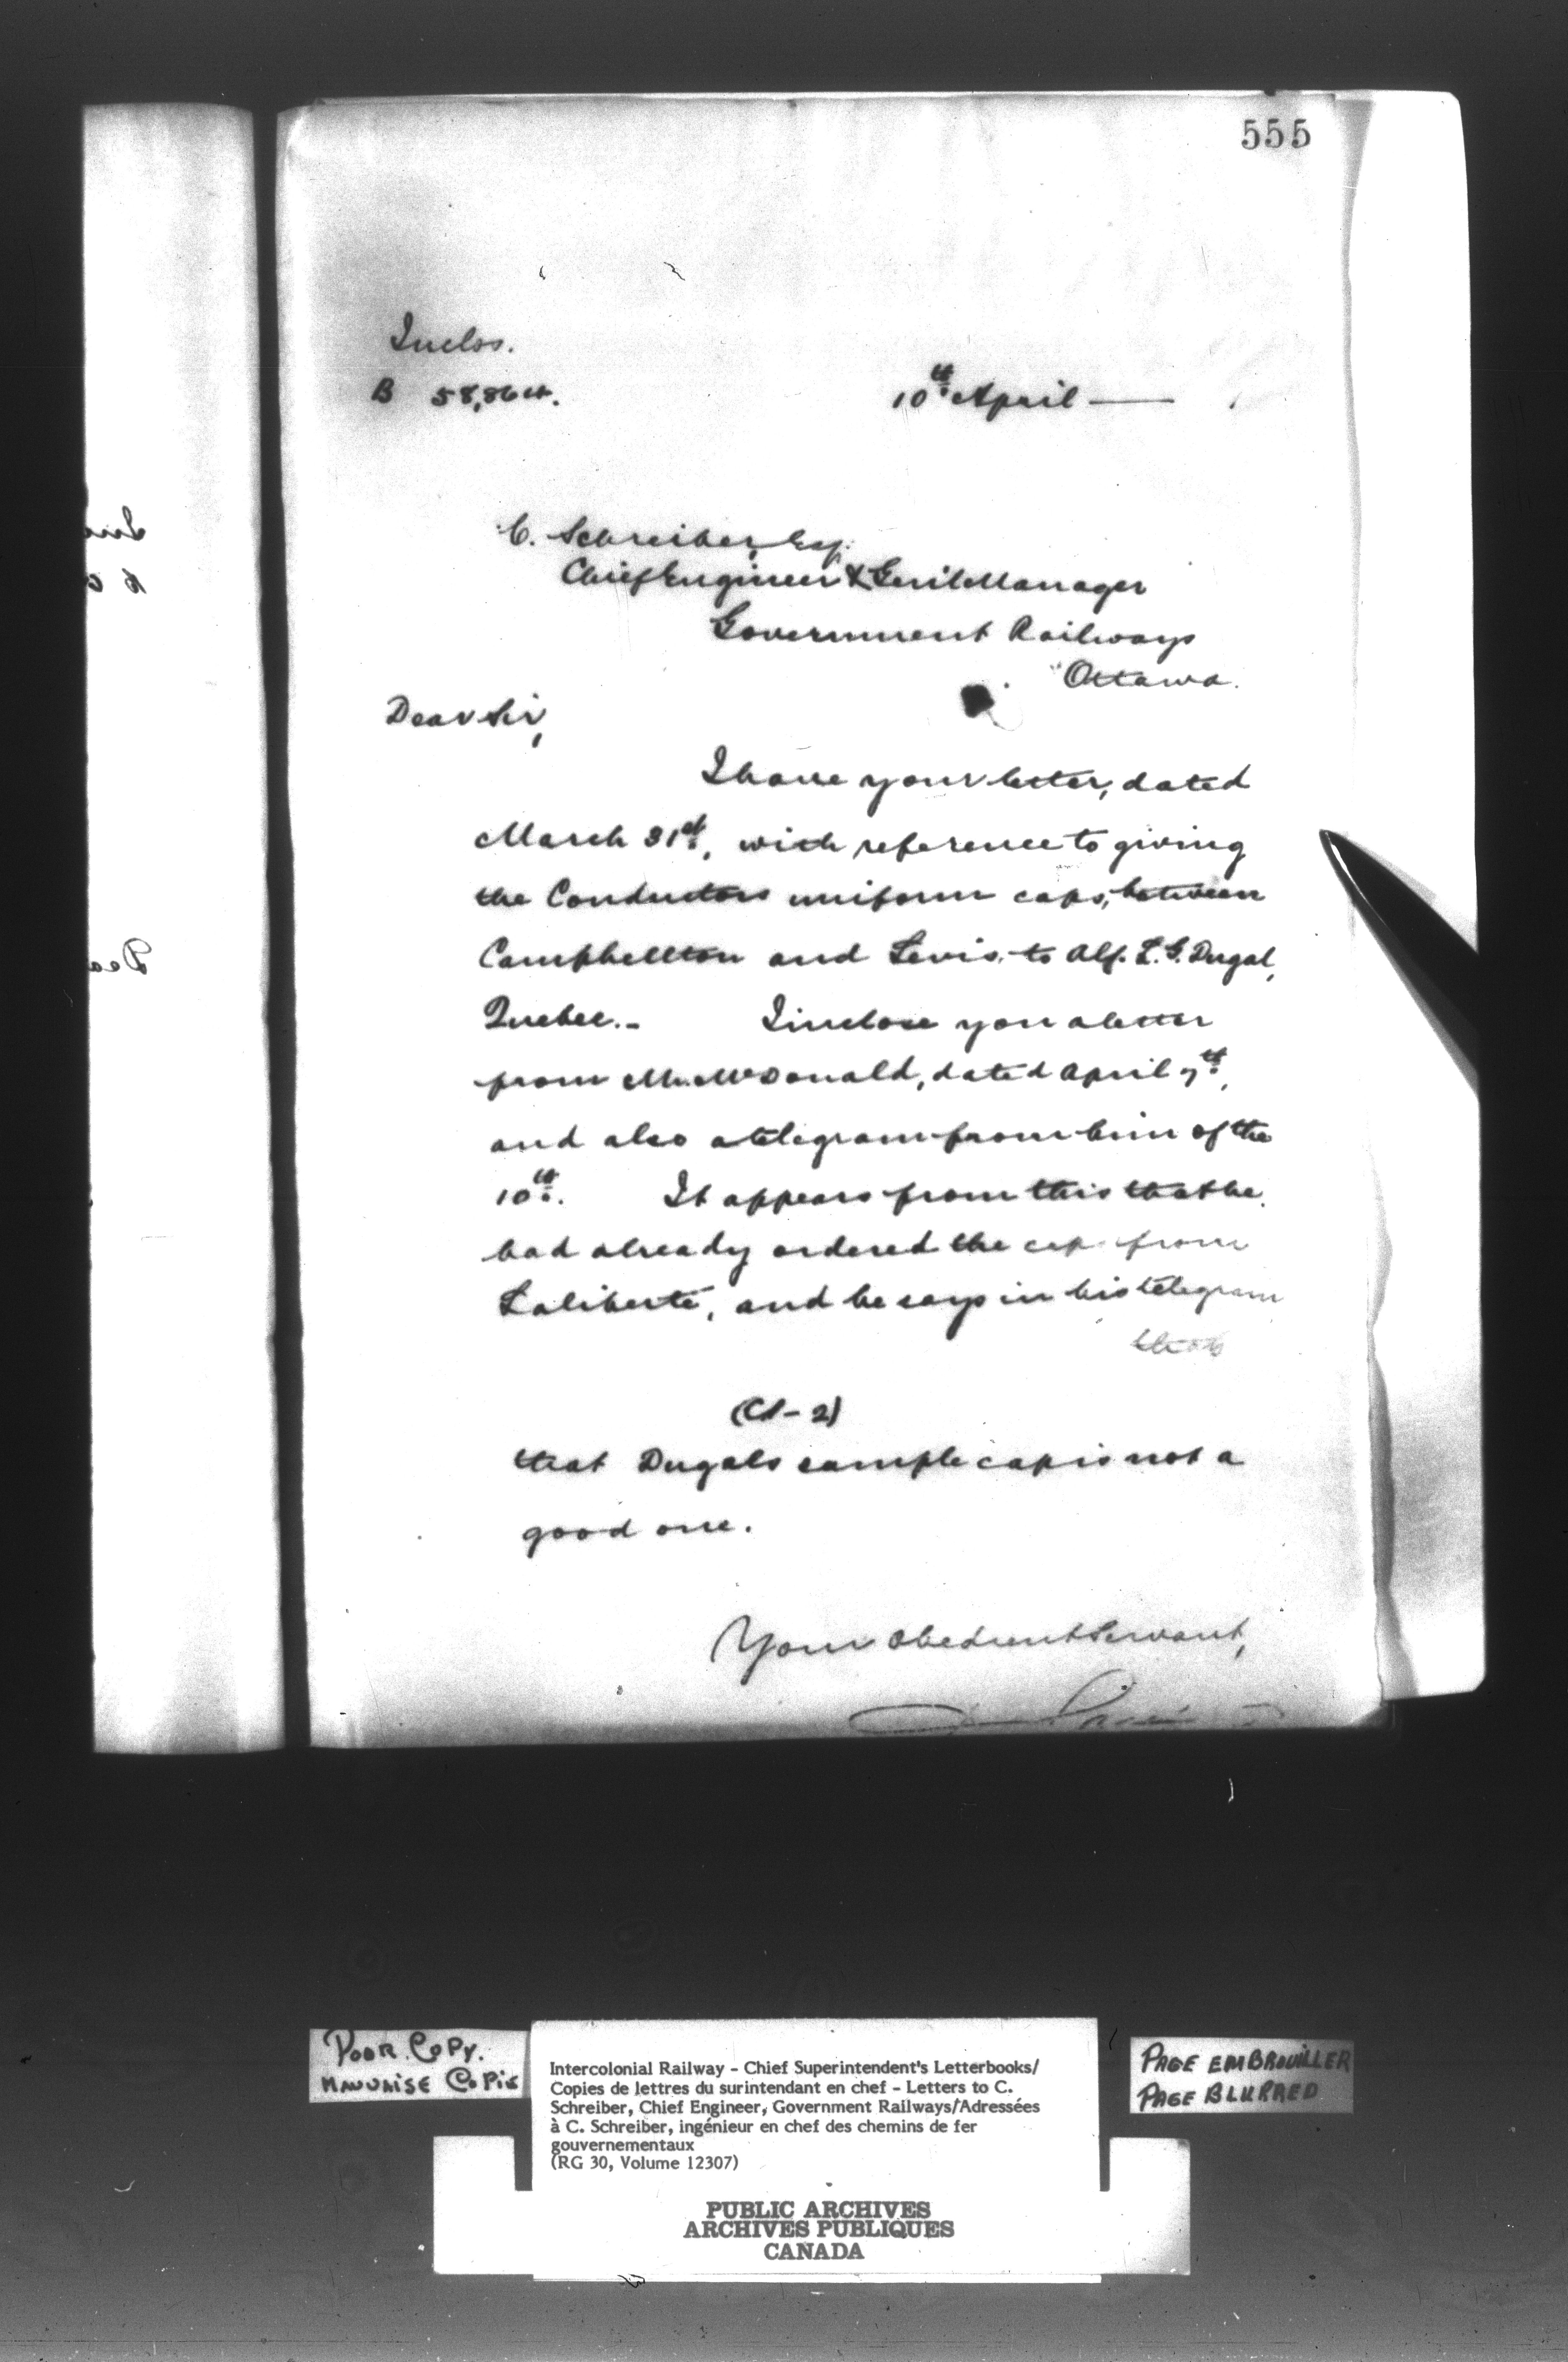 555
Inclos.
B 58,864.
10th April —
C. Schreiber, Esq.
Chief Engineer & Genl Manager
Government Railways
Ottawa.
Dear Sir,
I have your letter, dated
March 31st, with reference to giving
the Conductors uniform caps, between
Campbellton and Levis, to Alf. L. G. Dugal,
Quebec. - I inclose you a letter
from Mr. McDonald, dated April 7th,
and also a telegram from him of the
10th. It appears from this that he
had already ordered the cap from
Laliberté, and he says in his telegram
that
(Cl - 2)
that Dugals sample cap is not a
good one.
Your Obedient Servant,
POOR COPY.
MAUVAISE COPIE
Intercolonial Railway - Chief Superintendent's Letterbooks/
Copies de lettres du surintendant en chef - Letters to C.
Schreiber, Chief Engineer, Government Railways/Adressées
à C. Schreiber, ingénieur en chef des chemins de fer
gouvernementaux
(RG 30, Volume 12307)
PUBLIC ARCHIVES
ARCHIVES PUBLIQUES
CANADA
PAGE EMBROUILLER
PAGE BLURRED